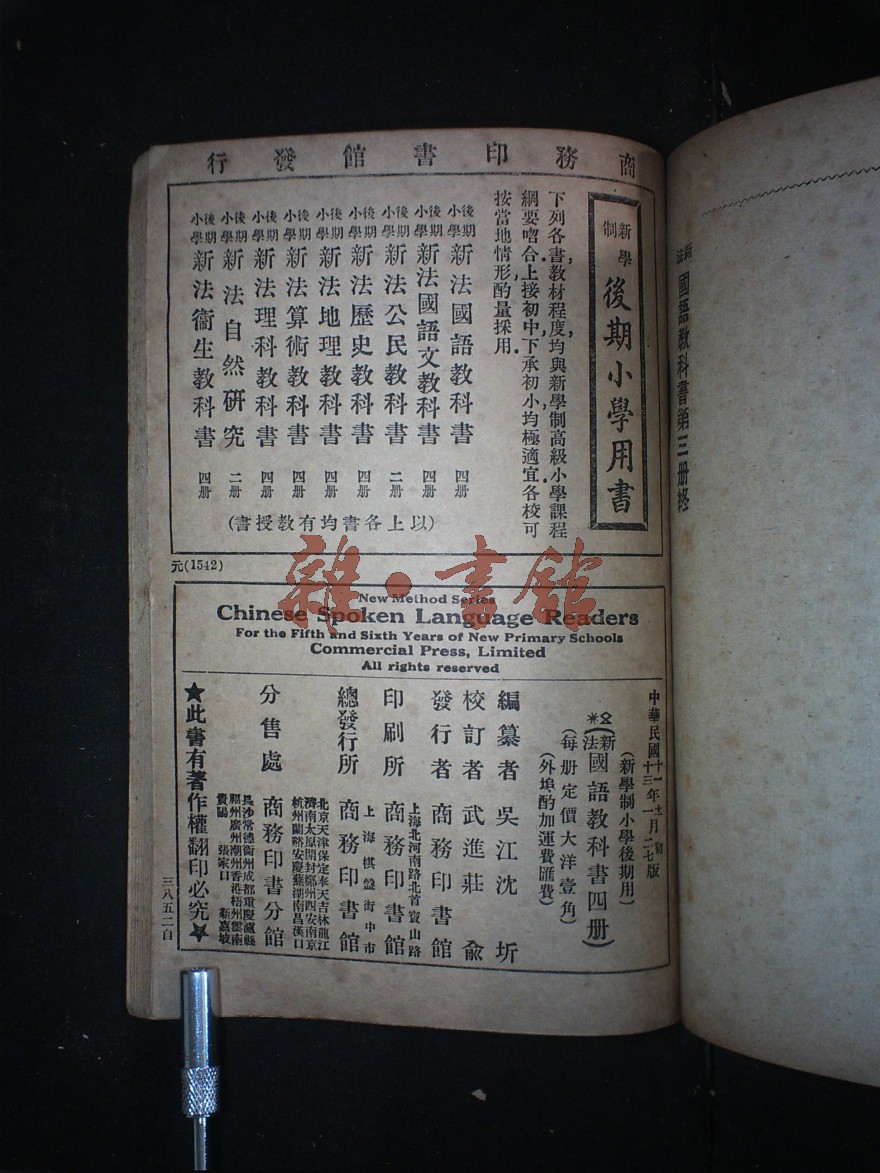 商務印書館發行
新學制
後期小學用書
下列各書教材程度均與新學制高級小學課程
綱要脗合上接初中下承初小均極適宜各校可
按當地情形酌量採用
後期小學 新法國語教科書 四册
後期小學 新法國語文教科書 四册
後期小學 新法公民教科書 二册
後期小學 新法歷史教科書 四册
後期小學 新法地理教科書 四册
後期小學 新法算術教科書 四册
後期小學 新法理科教科書 四册
後期小學 新法自然研究 二册
後期小學 新法衞生教科書 四册
(以上各書均有教授書)
元(1542)
雜·書館
New Method Series
Chinese Spoken Language Readers
For the Fifth and Sixth Years of New Primary Schools
Commercial Press, Limited
All rights reserved
中華民國十一年十一月初版
十三年一月二七版
(新學制小學後期用)
(新法)國語教科書四册)
(每册定價大洋壹角)
(外埠酌加運費匯費)
編纂者 吳江沈圻
校訂者 武進莊俞
發行者 商務印書館
上海北河南路北首寶山路
印刷所 商務印書館
上海棋盤街中市
總發行所 商務印書館
北京天津保定奉天吉林龍江
濟南太原開封鄭州西安南京
杭州蘭谿安慶蕪湖南昌漢口
分售處 商務印書分館
長沙常德衡州成都重慶瀘縣
福州廣州潮州香港梧州雲南
貴陽 張家口 新嘉坡
★此書有著作權翻印必究★
三八五二自
國語教科書第三册終